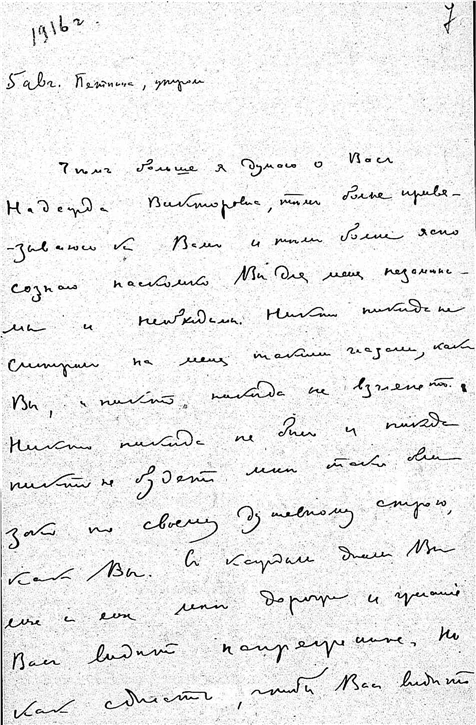 1916 г.
7
5 авг. Пятница, утром
Чѣмъ больше я думаю о Васъ
Надежда Викторовна, тѣмъ болѣе привя-
-зываюсь къ Вамъ и тѣмъ болѣе ясно
сознаю насколько Вы для меня незамѣни-
мы и необходимы. Никто никогда не
смотрѣлъ на меня такими глазами, какъ
Вы, и никто никогда не взглянетъ.
Никто никогда не былъ и никогда
никто не будетъ мнѣ такъ бли
зокъ по своему душевному строю,
какъ Вы. Съ каждымъ днемъ Вы
еще и еще мнѣ дороже и
Васъ видѣть Но
какъ сдѣлать, чтобы Васъ видѣть